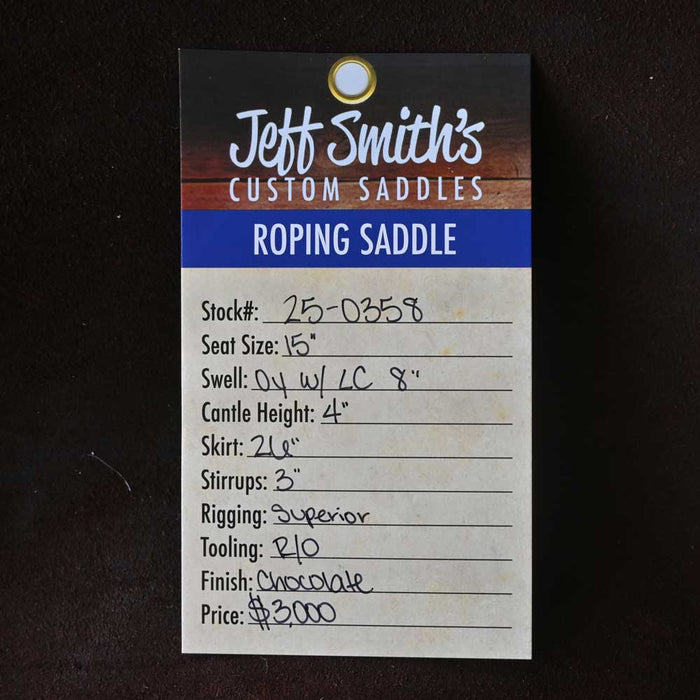 Jeff Smith's
CUSTOM SADDLES
ROPING SADDLE
Stock#: 25-0358
Seat Size: 15"
Swell: Oy w/ LC 8"
Cantle Height: 4"
Skirt: 26"
Stirrups: 3"
Rigging: Superior
Tooling: R/O
Finish: Chocolate
Price: $3,000